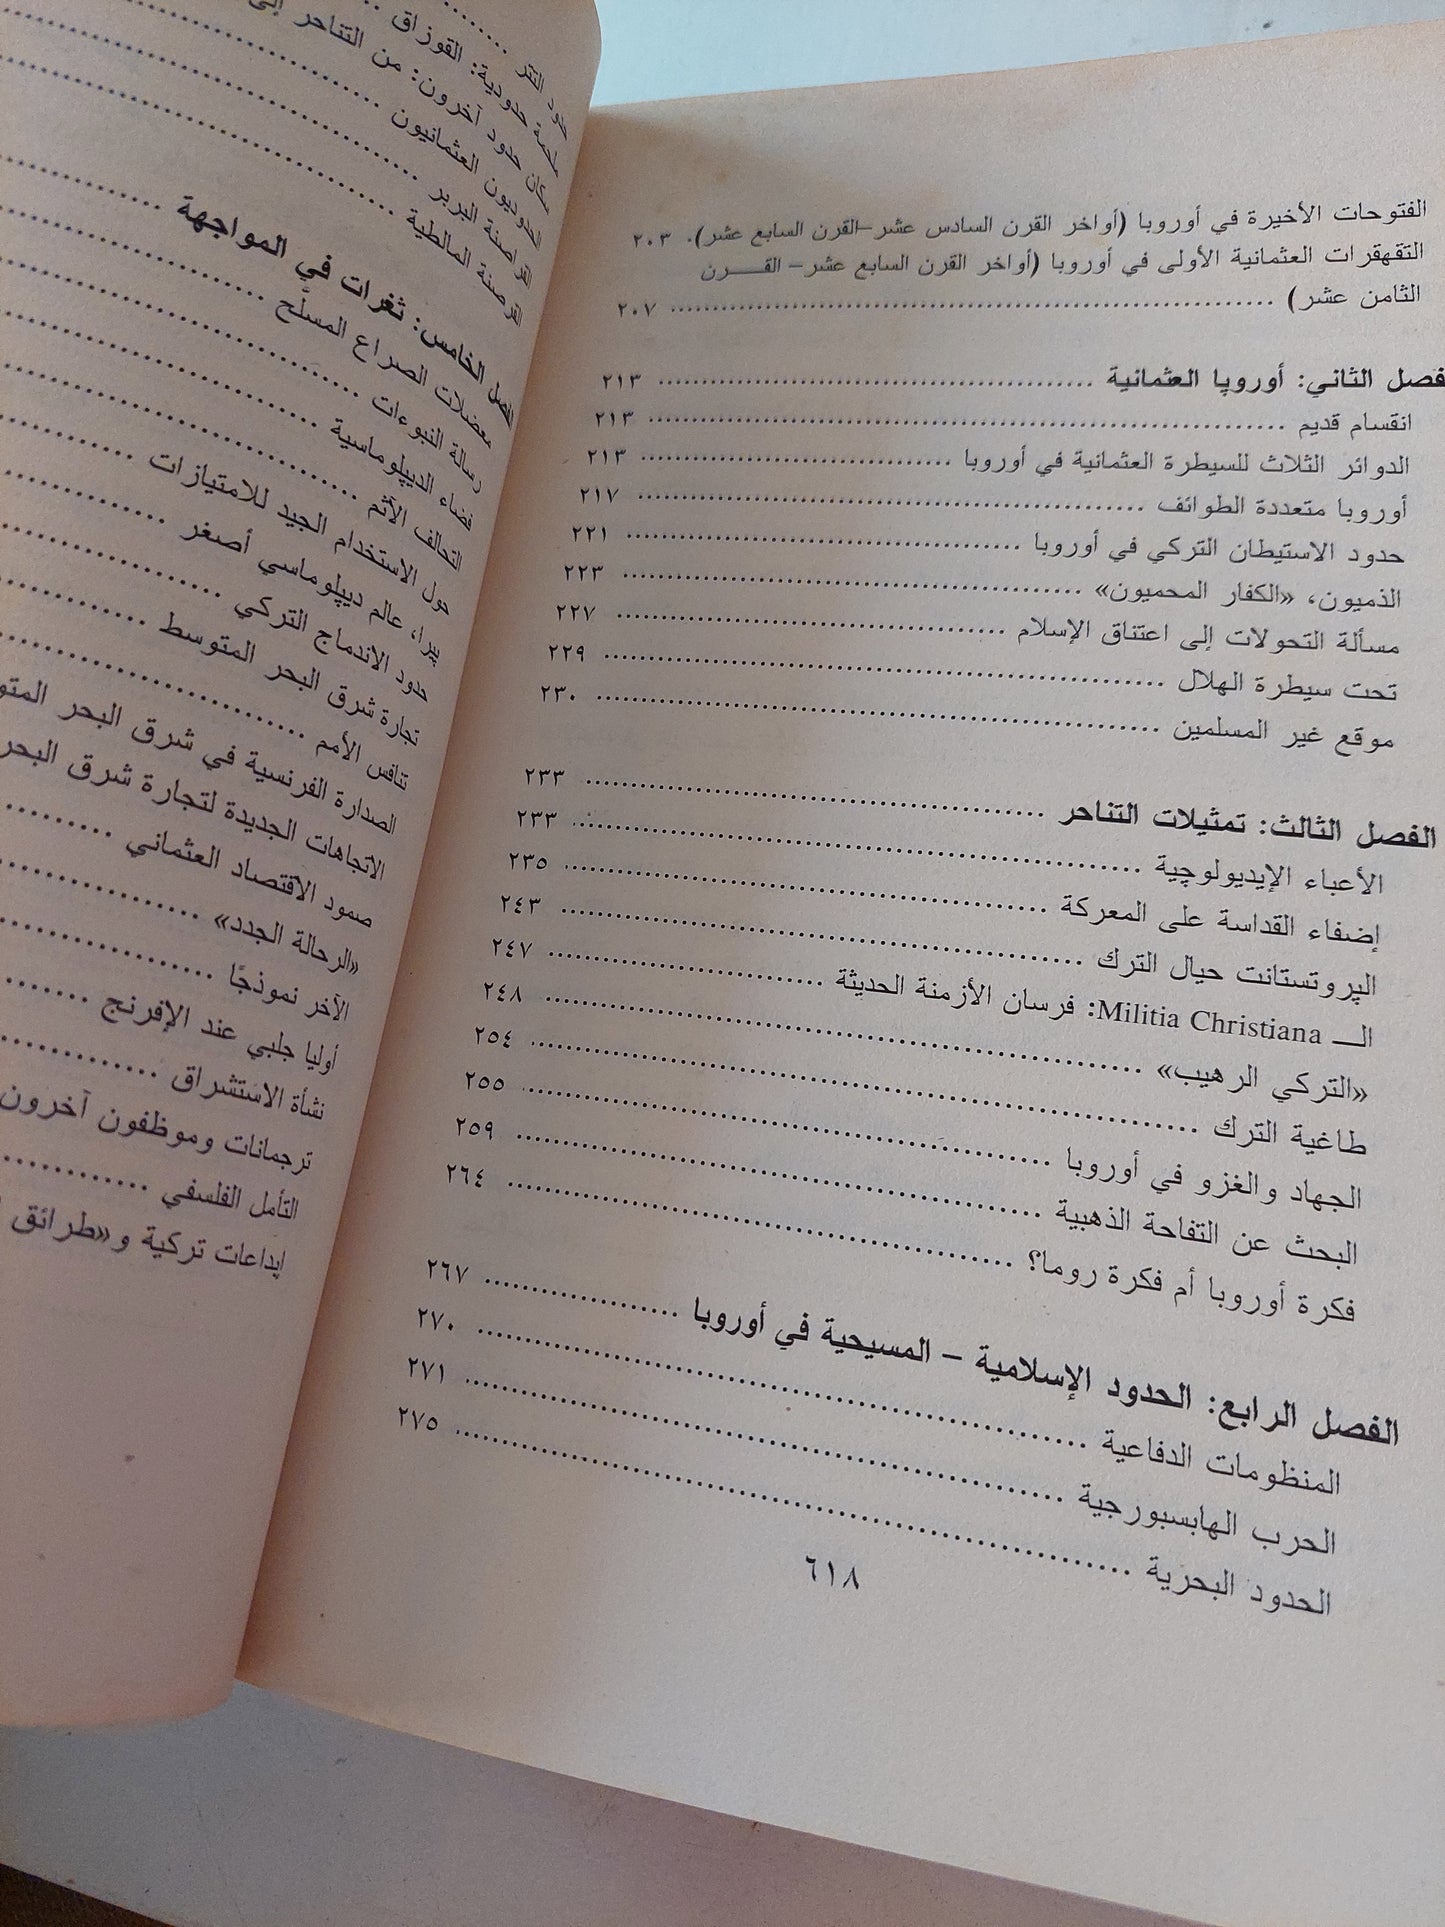 الفتوحات الأخيرة في أوروبا (أواخر القرن السادس عشر–القرن السابع عشر). ٢٠٣
التقهقرات العثمانية الأولى في أوروبا (أواخر القرن السابع عشر– القـــرن
الثامن عشر) ........ ٢٠٧
فصل الثاني: أوروپا العثمانية ........ ٢١٣
انقسام قديم ........ ٢١٣
الدوائر الثلاث للسيطرة العثمانية في أوروبا ........ ٢١٣
أوروبا متعددة الطوائف ........ ٢١٧
حدود الاستيطان التركي في أوروبا ........ ٢٢١
الذميون، «الكفار المحميون» ........ ٢٢٣
مسألة التحولات إلى اعتناق الإسلام ........ ٢٢٧
تحت سيطرة الهلال ........ ٢٢٩
موقع غير المسلمين ........ ٢٣٠
الفصل الثالث: تمثيلات التناحر ........ ٢٣٣
الأعباء الإيديولوچية ........ ٢٣٣
إضفاء القداسة على المعركة ........ ٢٣٥
الپروتستانت حيال الترك ........ ٢٤٣
الـــ Militia Christiana: فرسان الأزمنة الحديثة ........ ٢٤٧
«التركي الرهيب» ........ ٢٤٨
طاغية الترك ........ ٢٥٤
الجهاد والغزو في أوروبا ........ ٢٥٥
البحث عن التفاحة الذهبية ........ ٢٥٩
فكرة أوروبا أم فكرة روما؟ ........ ٢٦٤
الفصل الرابع: الحدود الإسلامية – المسيحية في أوروبا ........ ٢٦٧
المنظومات الدفاعية ........ ٢٧٠
الحرب الهابسبورجية ........ ٢٧١
الحدود البحرية ........ ٢٧٥
٦١٨
حدود التتر ........
ملحمة حدودية: القوزاق ........
سكان حدود آخرون: من التناحر إلى
الحدوديون العثمانيون ........
القراصنة البربر ........
القرصنة المالطية ........
الفصل الخامس: ثغرات في المواجهة ........
معضلات الصراع المسلَّح ........
رسالة النبوءات ........
فضاء الديپلوماسية ........
التحالف الآثم ........
حول الاستخدام الجيد للامتيازات ........
پيرا، عالم ديپلوماسي أصغر ........
حدود الاندماج التركي ........
تجارة شرق البحر المتوسط ........
تنافس الأمم ........
الصدارة الفرنسية في شرق البحر المتو
الاتجاهات الجديدة لتجارة شرق البحر
صمود الاقتصاد العثماني ........
«الرحالة الجدد» ........
الآخر نموذجًا ........
أوليا جلبي عند الإفرنج ........
نشأة الاستشراق ........
ترجمانات وموظفون آخرون
التأمل الفلسفي ........
إبداعات تركية و«طرائق